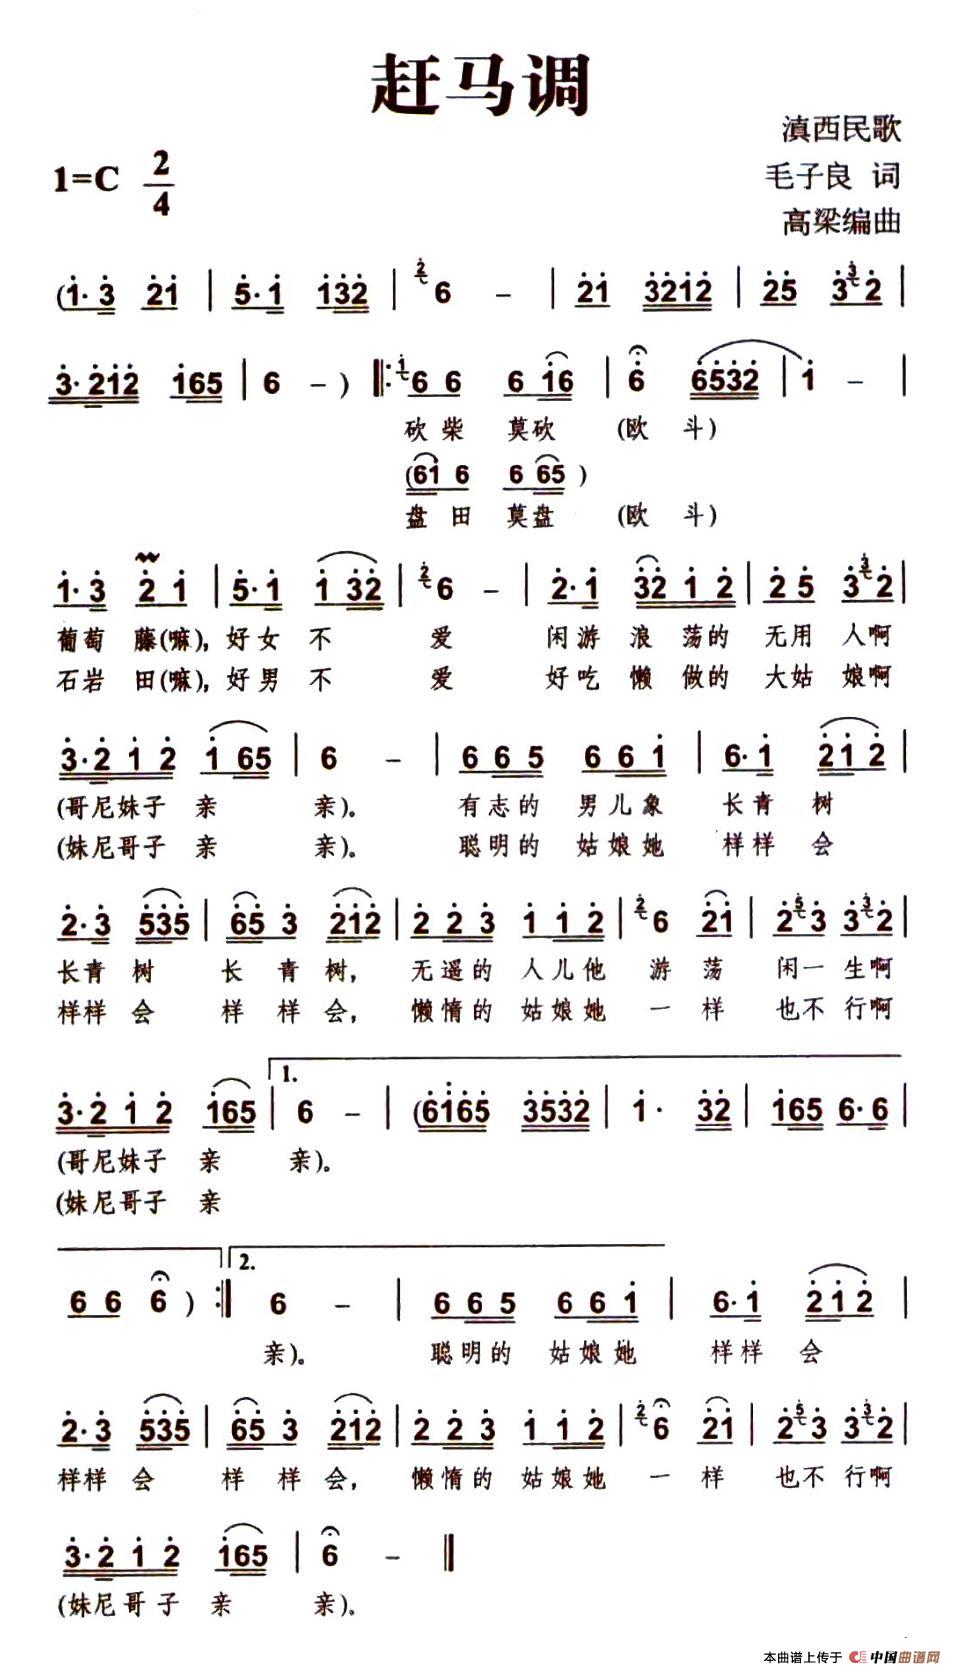 赶马调
滇西民歌
1=C 2/4
毛子良 词
高梁编曲
(1·3 21 | 5·1 132 | 2 6 – | 21 3212 | 25 3 3 2 |
3·212 165 | 6 – ) ‖: 1 6 6 6 16 | 6 6532 | 1 – |
砍柴 莫砍 (欧 斗)
(61 6 6 65 )
盘田 莫盘 (欧 斗)
1·3 2 1 | 5·1 1 32 | 2 6 – | 2·1 32 1 2 | 2 5 3 3 2 |
葡萄 藤(嘛), 好女 不 爱 闲游 浪 荡的 无用 人啊
石岩 田(嘛), 好男 不 爱 好吃 懒 做的 大姑 娘啊
3·2 1 2 1 65 | 6 – | 6 6 5 6 6 1 | 6·1 212 |
(哥尼妹子 亲 亲)。 有志的 男儿象 长青 树
(妹尼哥子 亲 亲)。 聪明的 姑娘她 样样 会
2·3 535 | 65 3 212 | 2 2 3 1 1 2 | 2 6 21 | 2 5 3 3 3 2 |
长青 树 长 青 树, 无遥的 人儿他 游 荡 闲一 生啊
样样 会 样 样 会, 懒惰的 姑娘她 一 样 也不 行啊
1.
3·2 1 2 165 | 6 – | (6165 3532 | 1· 32 | 165 6·6 |
(哥尼妹子 亲 亲)。
(妹尼哥子 亲
2.
6 6 6 ) :‖ 6 – | 6 6 5 6 6 1 | 6·1 212 |
亲)。 聪明的 姑娘她 样样 会
2·3 535 | 65 3 212 | 2 2 3 1 1 2 | 2 6 21 | 2 5 3 3 3 2 |
样样 会 样 样 会, 懒惰的 姑娘她 一 样 也不 行啊
3·2 1 2 165 | 6 – ‖
(妹尼哥子 亲 亲)。
本曲谱上传于 中国曲谱网